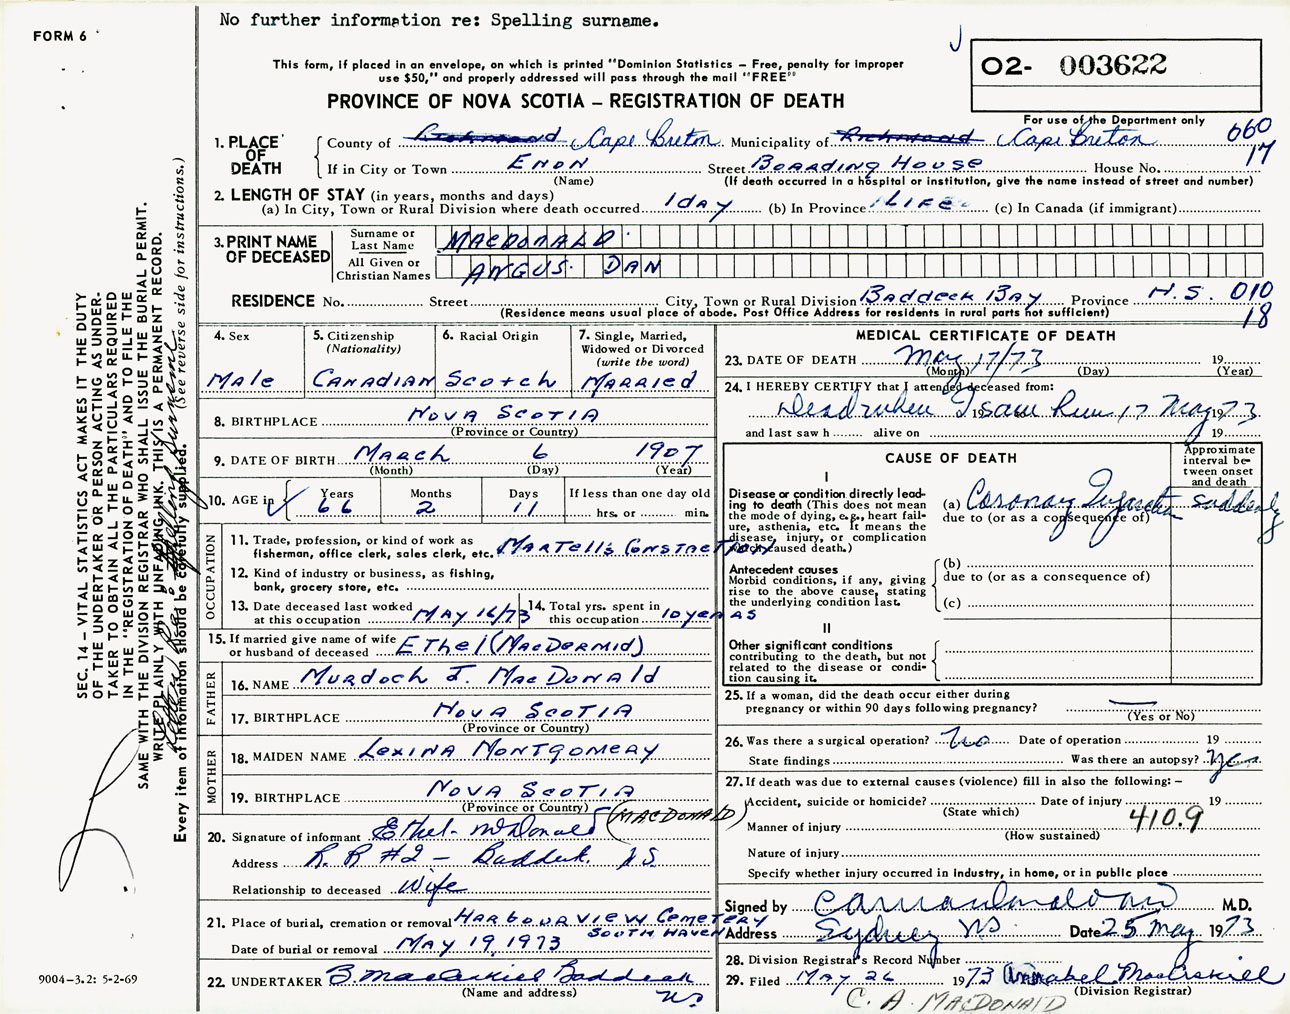 No further information re: Spelling surname.
FORM 6
This form, if placed in an envelope, on which is printed "Dominion Statistics – Free, penalty for improper
use $50," and properly addressed will pass through the mail "FREE"
O2- 003622
PROVINCE OF NOVA SCOTIA – REGISTRATION OF DEATH
For use of the Department only
660
17
1. PLACE OF DEATH
County of Richmond Cape Breton. Municipality of Richmond Cape Breton
If in City or Town ENON Street BOARDING HOUSE House No.
(Name) (If death occurred in a hospital or institution, give the name instead of street and number)
2. LENGTH OF STAY (in years, months and days)
(a) In City, Town or Rural Division where death occurred 1 DAY (b) In Province LIFE (c) In Canada (if immigrant)
3. PRINT NAME OF DECEASED
Surname or Last Name MACDONALD
All Given or Christian Names ANGUS DAN
RESIDENCE No. Street City, Town or Rural Division BADDECK BAY Province N.S. 010
(Residence means usual place of abode. Post Office Address for residents in rural parts not sufficient) 18
4. Sex
MALE
5. Citizenship
(Nationality)
CANADIAN
6. Racial Origin
SCOTCH
7. Single, Married,
Widowed or Divorced
(write the word)
MARRIED
8. BIRTHPLACE NOVA SCOTIA
(Province or Country)
9. DATE OF BIRTH MARCH 6 1907
(Month) (Day) (Year)
10. AGE in
Years 66
Months 2
Days 11
If less than one day old
hrs. or min.
OCCUPATION
11. Trade, profession, or kind of work as
fisherman, office clerk, sales clerk, etc. MARTELL'S CONSTRCTION
12. Kind of industry or business, as fishing,
bank, grocery store, etc.
13. Date deceased last worked
at this occupation MAY 16/73
14. Total yrs. spent in
this occupation 10 YEARS
15. If married give name of wife
or husband of deceased ETHEL (MACDERMID)
FATHER
16. NAME MURDOCH J. MACDONALD
17. BIRTHPLACE NOVA SCOTIA
(Province or Country)
MOTHER
18. MAIDEN NAME LEXINA MONTGOMERY
19. BIRTHPLACE NOVA SCOTIA
(Province or Country)
20. Signature of informant Ethel McDonald (MACDONALD)
Address R. R #2 – Baddeck N.S.
Relationship to deceased Wife
21. Place of burial, cremation or removal HARBOURVIEW CEMETERY
SOUTH HAVEN
Date of burial or removal MAY 19, 1973
22. UNDERTAKER B. MacAskill Baddeck
(Name and address) N.S
MEDICAL CERTIFICATE OF DEATH
23. DATE OF DEATH May 17/73 19
(Month) (Day) (Year)
24. I HEREBY CERTIFY that I attended deceased from:
Dead when I saw him 17 May 1973
and last saw h alive on 19
CAUSE OF DEATH
Approximate
interval be-
tween onset
and death
I
Disease or condition directly lead-
ing to death (This does not mean
the mode of dying, e.g., heart fail-
ure, asthenia, etc. It means the
disease, injury, or complication
which caused death.)
(a) Coronary Infarction suddenly
due to (or as a consequence of)
Antecedent causes
Morbid conditions, if any, giving
rise to the above cause, stating
the underlying condition last.
(b)
due to (or as a consequence of)
(c)
II
Other significant conditions
contributing to the death, but not
related to the disease or condi-
tion causing it.
25. If a woman, did the death occur either during
pregnancy or within 90 days following pregnancy? —
(Yes or No)
26. Was there a surgical operation? No Date of operation 19
State findings Was there an autopsy? Yes
27. If death was due to external causes (violence) fill in also the following: –
Accident, suicide or homicide? Date of injury 19
(State which)
Manner of injury 410.9
(How sustained)
Nature of injury
Specify whether injury occurred in industry, in home, or in public place
Signed by M.D.
Address Sydney NS Date 25 May 1973
28. Division Registrar's Record Number
29. Filed MAY 26 1973 Annabel MacAskill
(Division Registrar)
C. A. MACDONALD
SEC. 14 – VITAL STATISTICS ACT MAKES IT THE DUTY
OF THE UNDERTAKER OR PERSON ACTING AS UNDER-
TAKER TO OBTAIN ALL THE PARTICULARS REQUIRED
IN THE "REGISTRATION OF DEATH" AND TO FILE THE
SAME WITH THE DIVISION REGISTRAR WHO SHALL ISSUE THE BURIAL PERMIT.
WRITE PLAINLY WITH UNFADING INK. THIS IS A PERMANENT RECORD.
Every item of information should be carefully supplied. (See reverse side for instructions.)
9004-3.2: 5-2-69